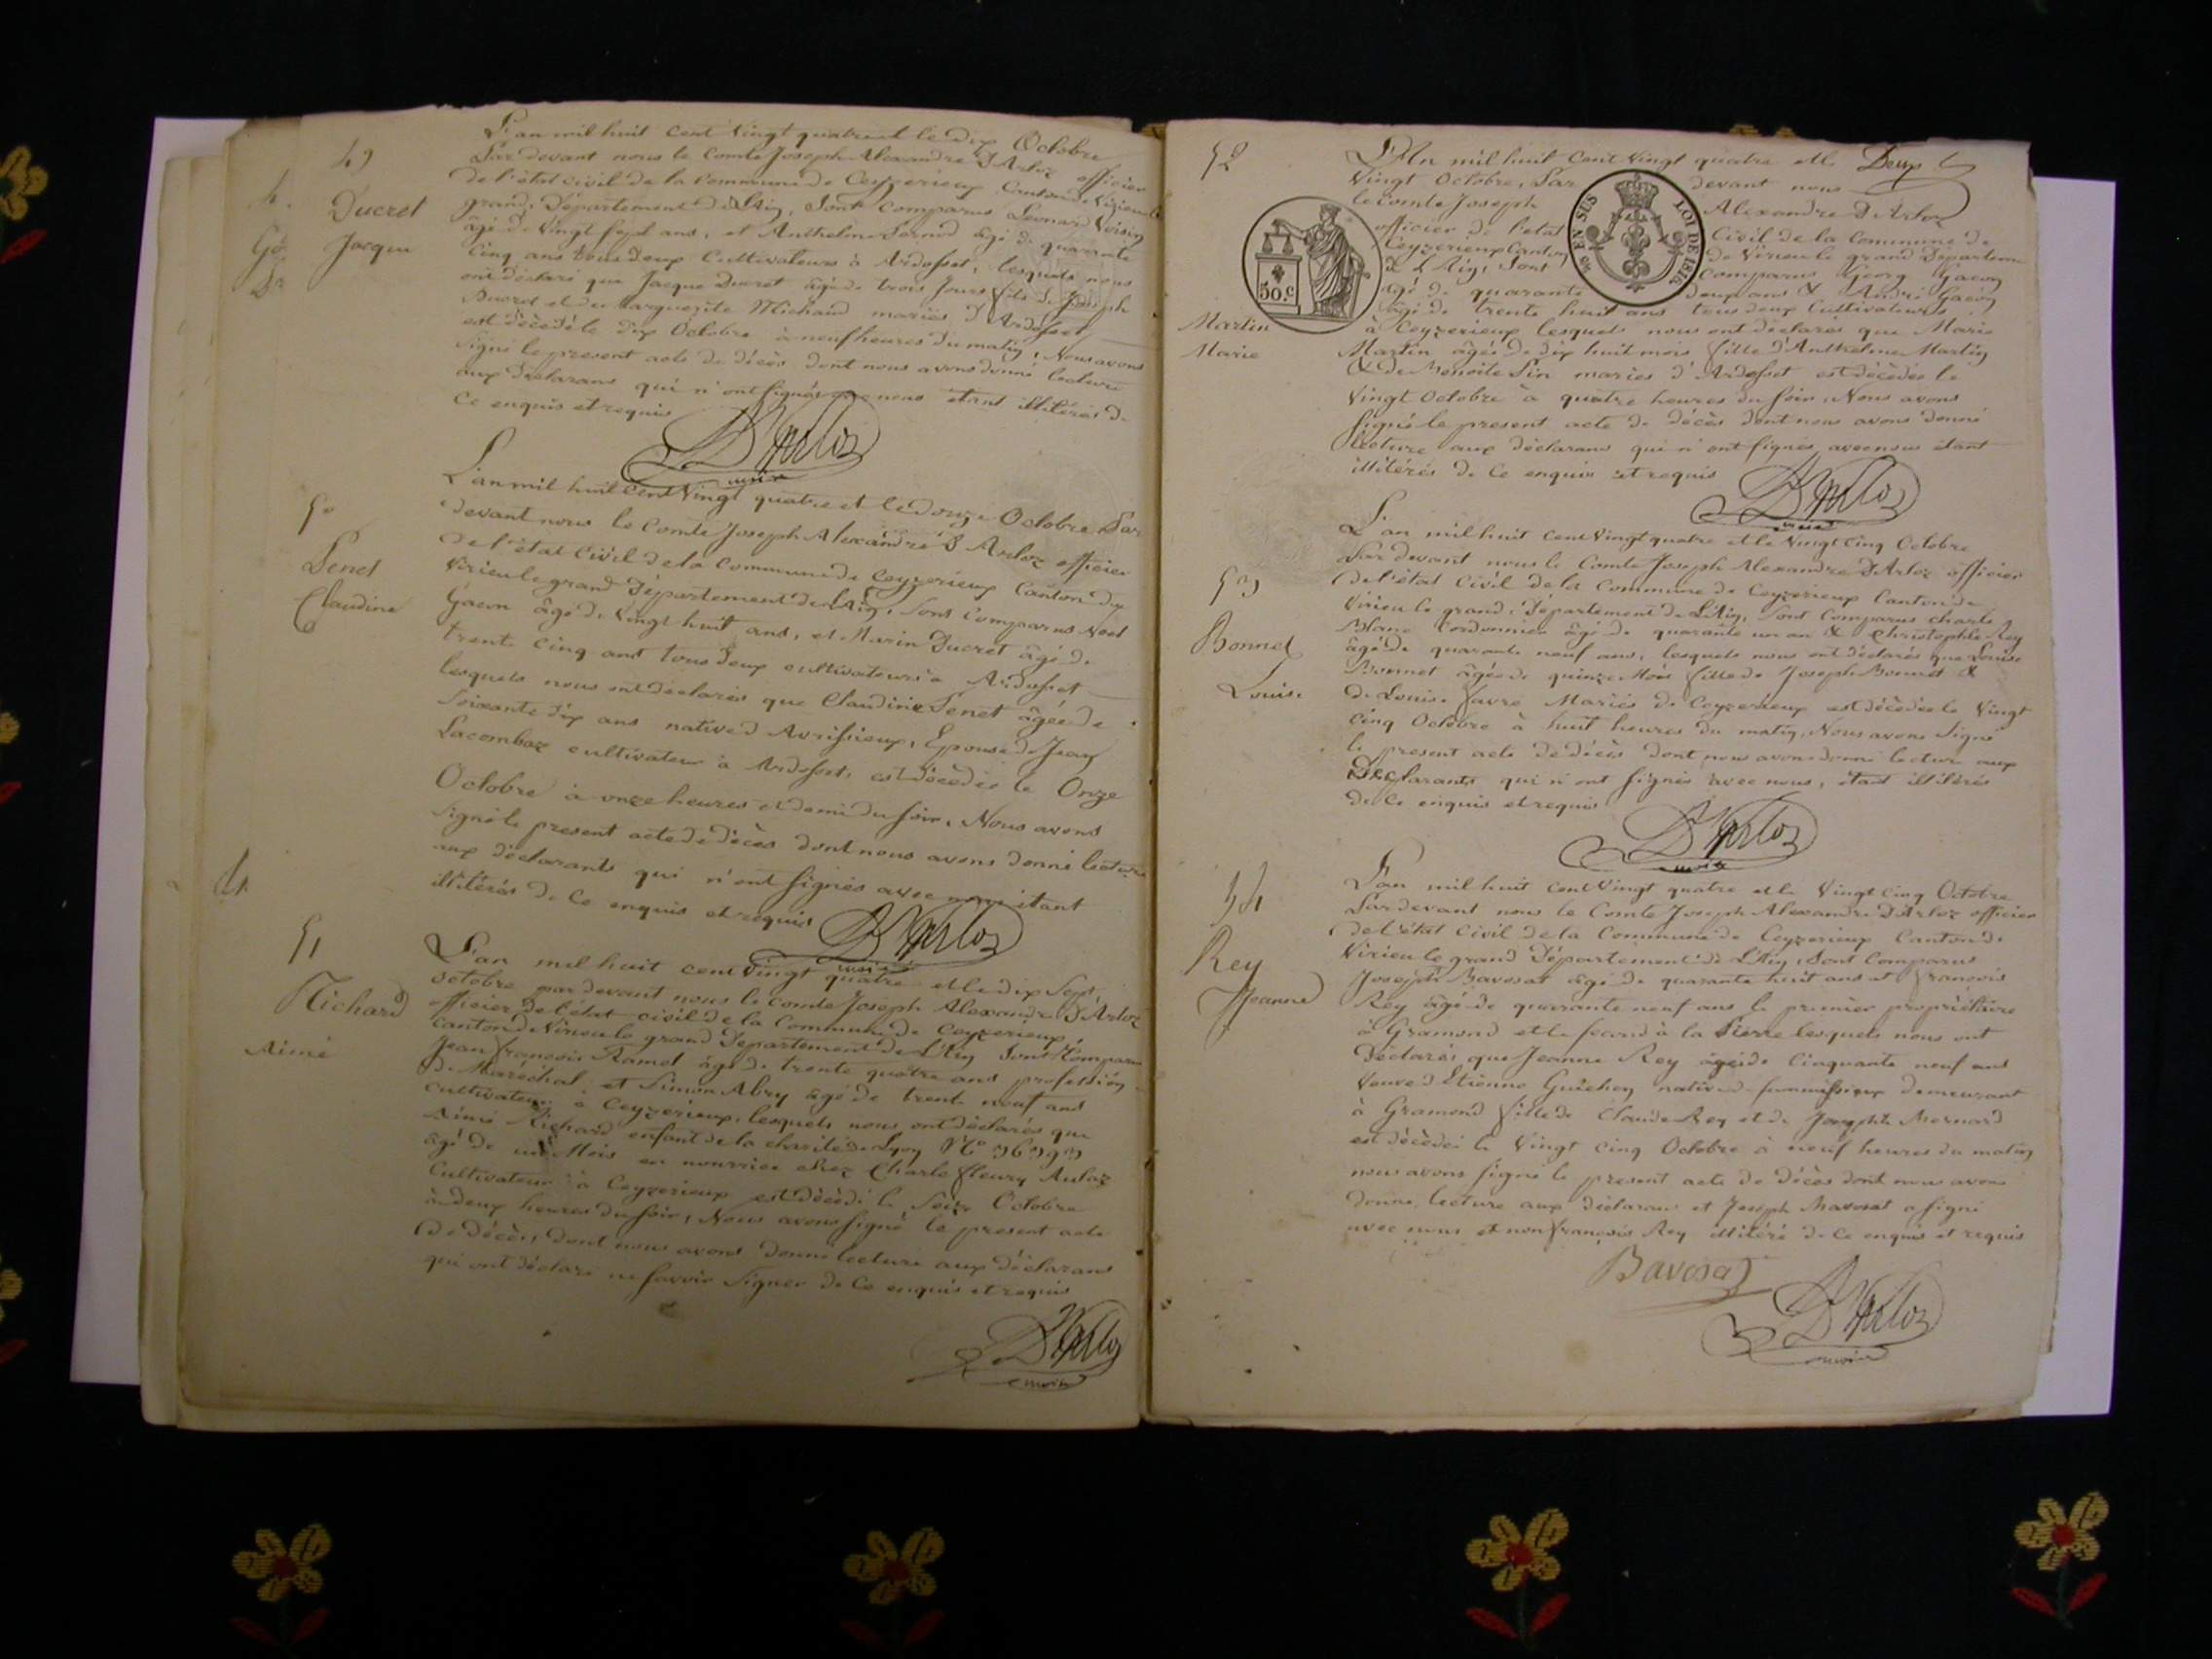 49
Ducret
Jacque
L'an mil huit cent vingt quatre et le dix Octobre
Par devant nous le Comte Joseph Alexandre D'Arloz officier
de l'état civil de la Commune de Ceyzerieux Canton de Virieu le
grand, Département de L'Ain, Sont comparus Léonard Voisin
âgé de vingt sept ans, et Anthelme Pernod âgé de quarante
cinq ans tous deux Cultivateurs à Ardosset, lesquels nous
ont déclaré que Jacque Ducret âgé de trois jours fils de Joseph
Ducret et de Marguerite Michaud mariés d'Ardosset
est décédé le dix Octobre à neuf heures du matin, Nous avons
signé le present acte de décès dont nous avons donné lecture
aux déclarans qui n'ont signés avec nous étant illitérés de
ce enquis et requis
D'Arloz
maire
50
Penet
Claudine
L'an mil huit cent vingt quatre et le douze Octobre Par
devant nous le Comte Joseph Alexandre D'Arloz officier
de l'état Civil de la Commune de Ceyzerieux Canton de
Virieu le grand Département de L'Ain, Sont comparus Noel
Gacon âgé de vingt huit ans, et Marin Ducret âgé de
trent cinq ans tous deux cultivateurs à Ardosset
lesquels nous ont déclarés que Claudine Penet âgée de
soixante dix ans native d'Avrissieux, Epouse de Jean
Lacombaz cultivateur à Ardosset, est décédée le Onze
Octobre à onze heures et demi du soir, Nous avons
signé le present acte de décès dont nous avons donné lecture
aux déclarants qui n'ont signés avec nous étant
illitérés de ce enquis et requis
D'Arloz
maire
51
Richard
Aimé
L'an mil huit cent vingt quatre et le dix sept
octobre par devant nous le comte Joseph Alexandre D'Arloz
officier de l'état civil de la Commune de Ceyzerieux
Canton de Virieu le grand Département de L'Ain Sont Comparus
Jean françois Ramel âgé de trente quatre ans profession
de Maréchal et Simon Abry âgé de trent neuf ans
cultivateur à Ceyzerieux, lesquels nous ont déclarés que
Aimé Richard enfant de la charité de Lyon N°
âgé de un Mois en nourrice chez Charle fleury Aubaz
Cultivateur à Ceyzerieux est décédé le Seize Octobre
à deux heures du soir, Nous avons signé le present acte
de décès, dont nous avons donné lecture aux déclarans
qui ont déclaré ne savoir signer de ce enquis et requis
D'Arloz
maire
52
EN SUS
LOI DE 1816
50.c
Martin
Marie
L'An mil huit cent vingt quatre et le
Vingt Octobre, Par devant nous
le comte Joseph Alexandre D'Arloz
officier de l'état Civil de la Commune de
Ceyzerieux Canton de Virieu le grand Departem
de L'Ain, Sont comparus Georg Gacon
âgé de quarante deux ans & André Gacon
âgé de trente huit ans tous deux Cultivateurs
à Ceyzerieux lesquels nous ont déclarés que Marie
Martin âgée de dix huit mois fille d'Anthelme Martin
& de Benoite Pin mariés d'Ardosset est décédée le
Vingt Octobre à quatre heures du soir, Nous avons
signé le present acte de décès dont nous avons donné
lecture aux déclarans qui n'ont signés avec nous étant
illitérés de ce enquis et requis
D'Arloz
maire
53
Bonnet
Louise
L'an mil huit cent vingt quatre et le vingt cinq Octobre
Par devant nous le Comte Joseph Alexandre D'Arloz officier
de l'état Civil de la Commune de Ceyzerieux Canton de
Virieu le grand, Département de L'Ain, Sont comparus charle
Blanc Cordonnier âgé de quarante un an & Christophle Rey
âgé de quarante neuf ans, lesquels nous ont déclarés que Louise
Bonnet âgée de quinze Mois fille de Joseph Bonnet &
de Louise favre Mariés de Ceyzerieux est décédée le vingt
cinq Octobre à huit heures du matin, Nous avons signé
le present acte de décès dont nous avons donné lecture aux
Déclarants qui n'ont signés avec nous, étant illitérés
de ce enquis et requis
D'Arloz
maire
54
Rey
Jeanne
L'an mil huit cent vingt quatre et le Vingt cinq Octobre
Par devant nous le Comte Joseph Alexandre D'Arloz officier
de l'état Civil de la Commune de Ceyzerieux Canton de
Virieu le grand Département de L'Ain, Sont Comparus
Joseph Bavosat âgé de quarante huit ans et françois
Rey âgé de quarante neuf ans le premier propriétaire
à Gramond et le second à la Pierre lesquels nous ont
Déclarés que Jeanne Rey âgée de Cinquante neuf ans
Veuve d'Etienne Guichon native de demeurant
à Gramond fille de Claude Rey et de Josephte Mornard
est décédée le vingt cinq Octobre à neuf heures du matin
nous avons signé le present acte de décès dont nous avons
donné lecture aux déclarans et Joseph Bavosat a signé
avec nous et non françois Rey illitéré de ce enquis et requis
Bavosat
D'Arloz
maire